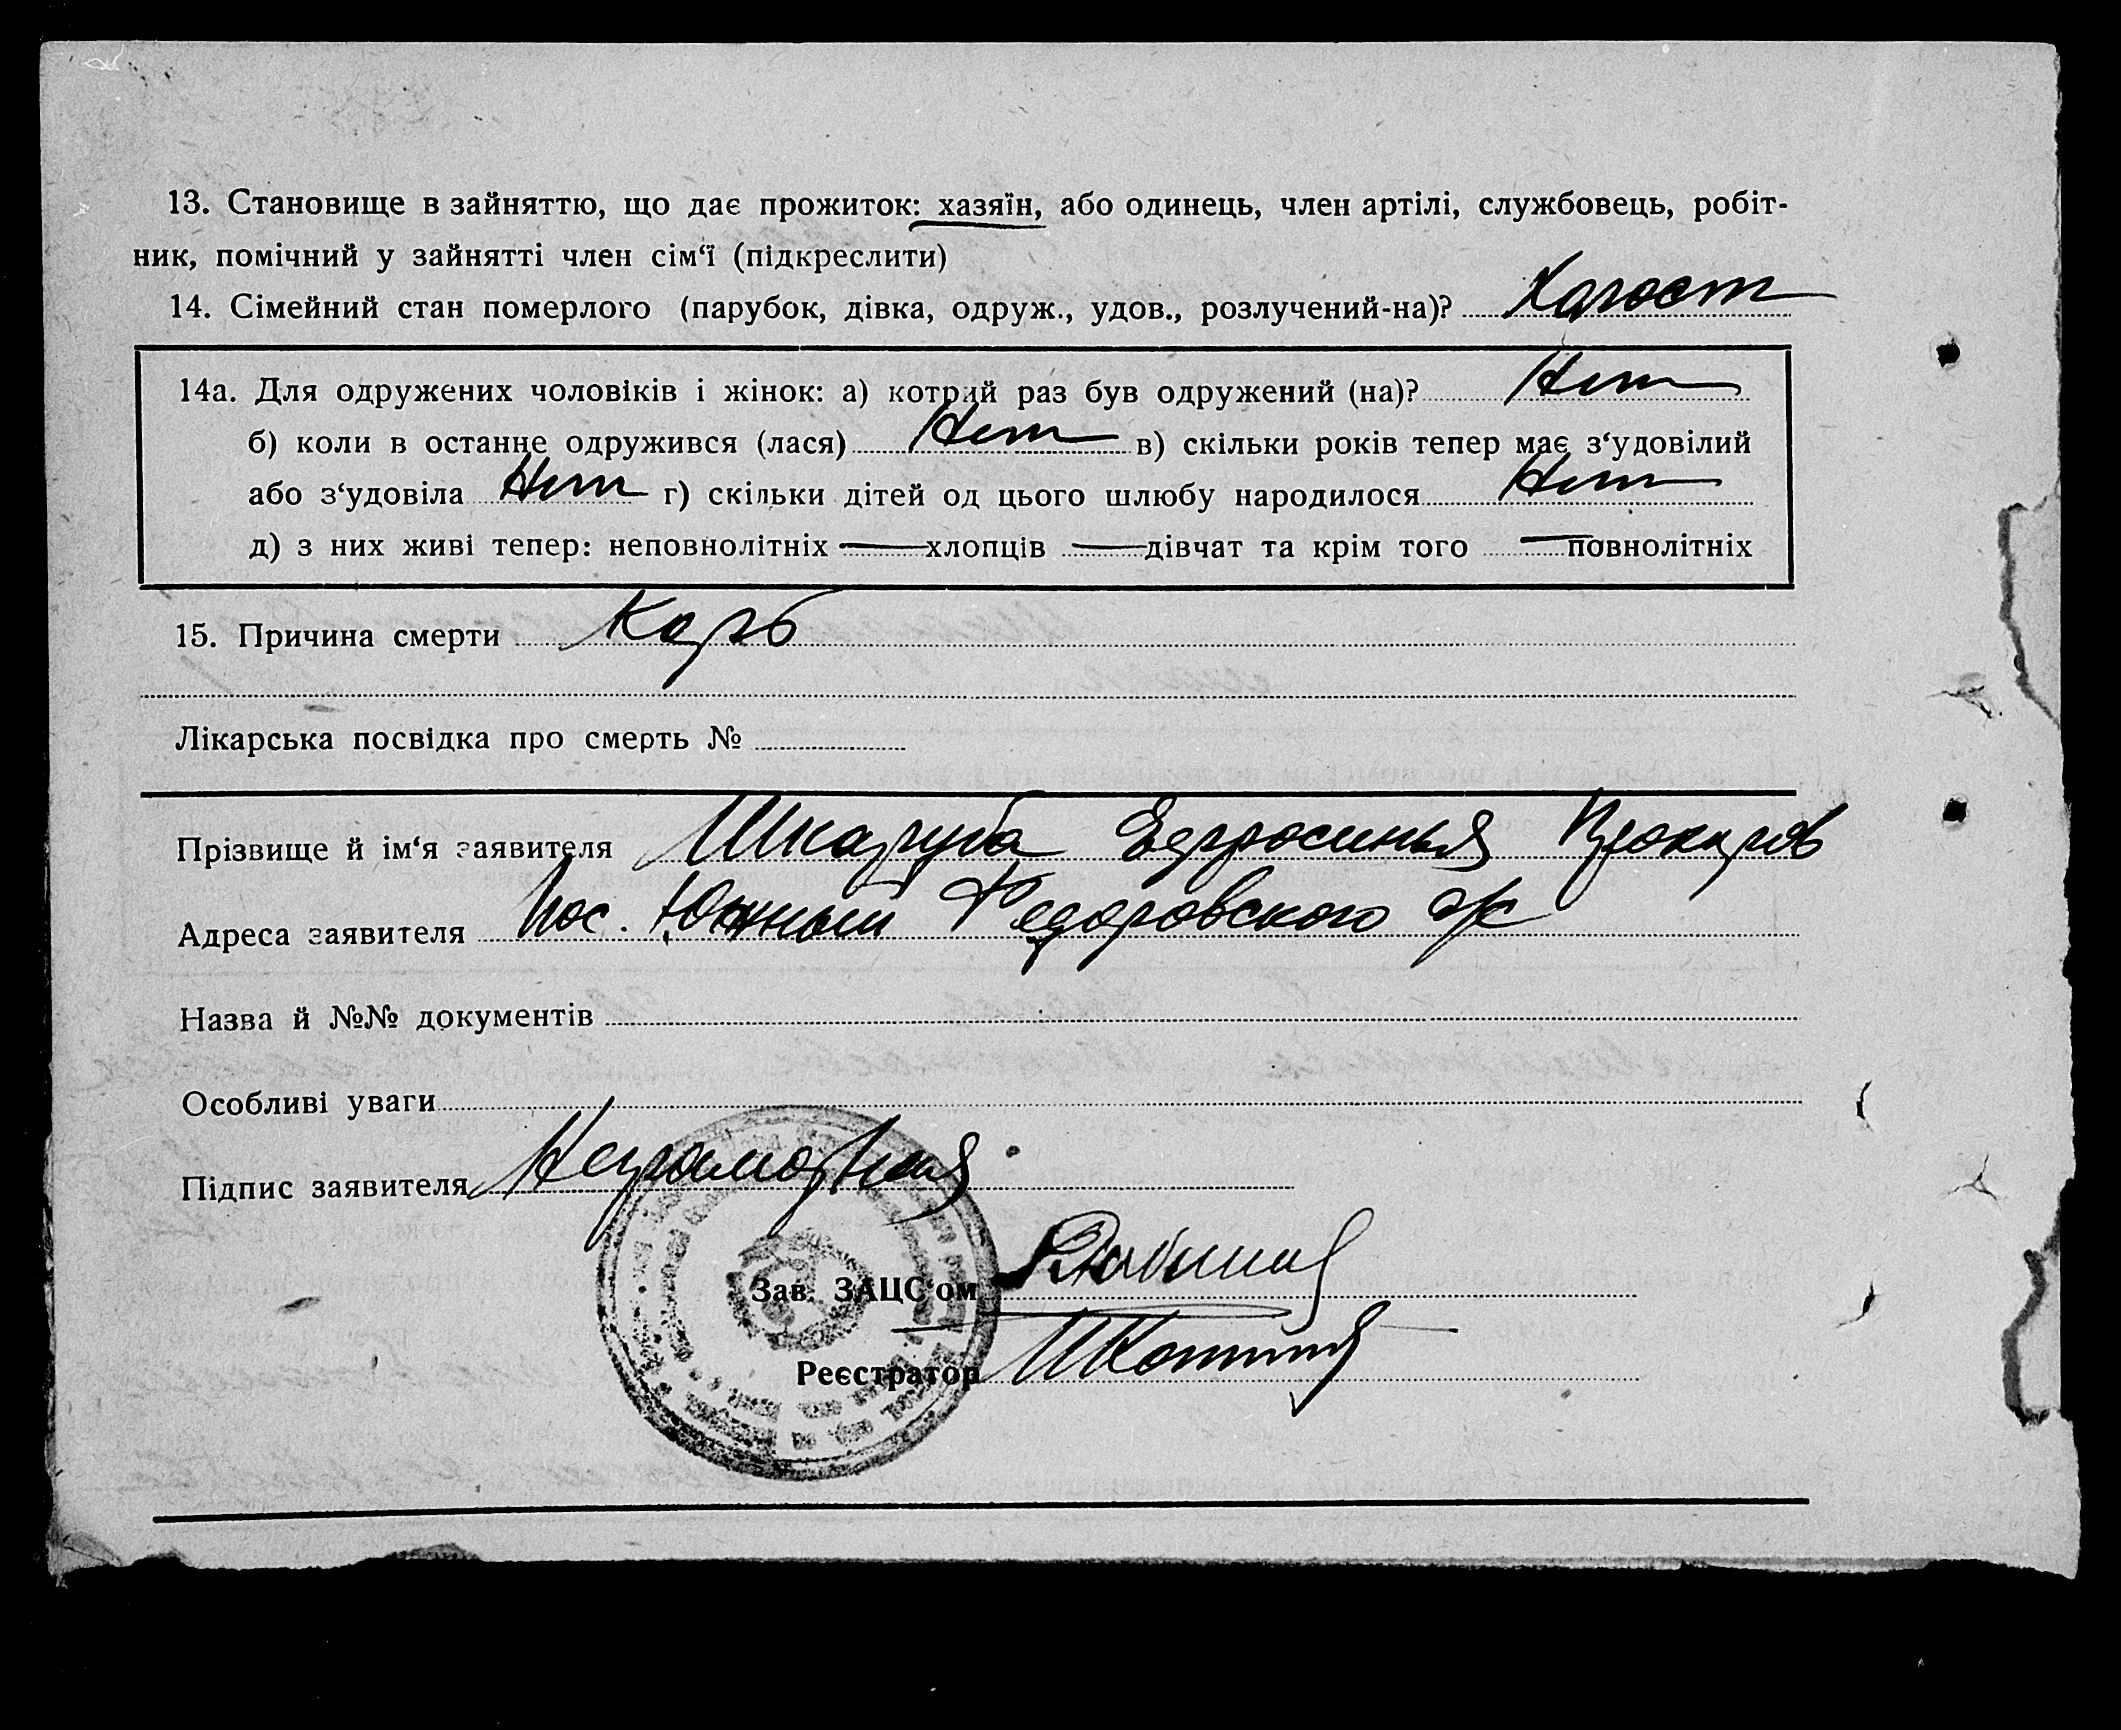 13. Становище в зайняттю, що дає прожиток: хазяїн, або одинець, член артілі, службовець, робіт-
ник, помічний у зайнятті член сім‘ї (підкреслити)
14. Сімейний стан померлого (парубок, дівка, одруж., удов., розлучений-на)? Холост
14а. Для одружених чоловіків і жінок: а) котрий раз був одружений (на)? Нет
б) коли в останнє одружився (лася) Нет в) скільки років тепер має з‘удовілий
або з‘удовіла Нет г) скільки дітей од цього шлюбу народилося Нет
д) з них живі тепер: неповнолітніх — хлопців — дівчат та крім того — повнолітніх
15. Причина смерти Корь
Лікарська посвідка про смерть №
Прізвище й ім‘я заявителя Шкаруба Ефросинья
Адреса заявителя Пос. Южный Федоровского с/с
Назва й №№ документів
Особливі уваги
Підпис заявителя Неграмотная
Зав. ЗАЦС‘ом
Реєстратор